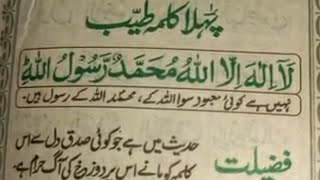 پہلا کلمہ طیّب
لَآ اِلٰهَ اِلَّا اللهُ مُحَمَّدٌ رَّسُوْلُ اللهِ
نہیں ہے کوئی معبود سوا اللہ کے، محمدؐ اللہ کے رسول ہیں۔
فضیلت
حدیث میں ہے جو کوئی صدق دل سے اس
کلمہ کو مانے اس پر دوزخ کی آگ حرام ہے۔